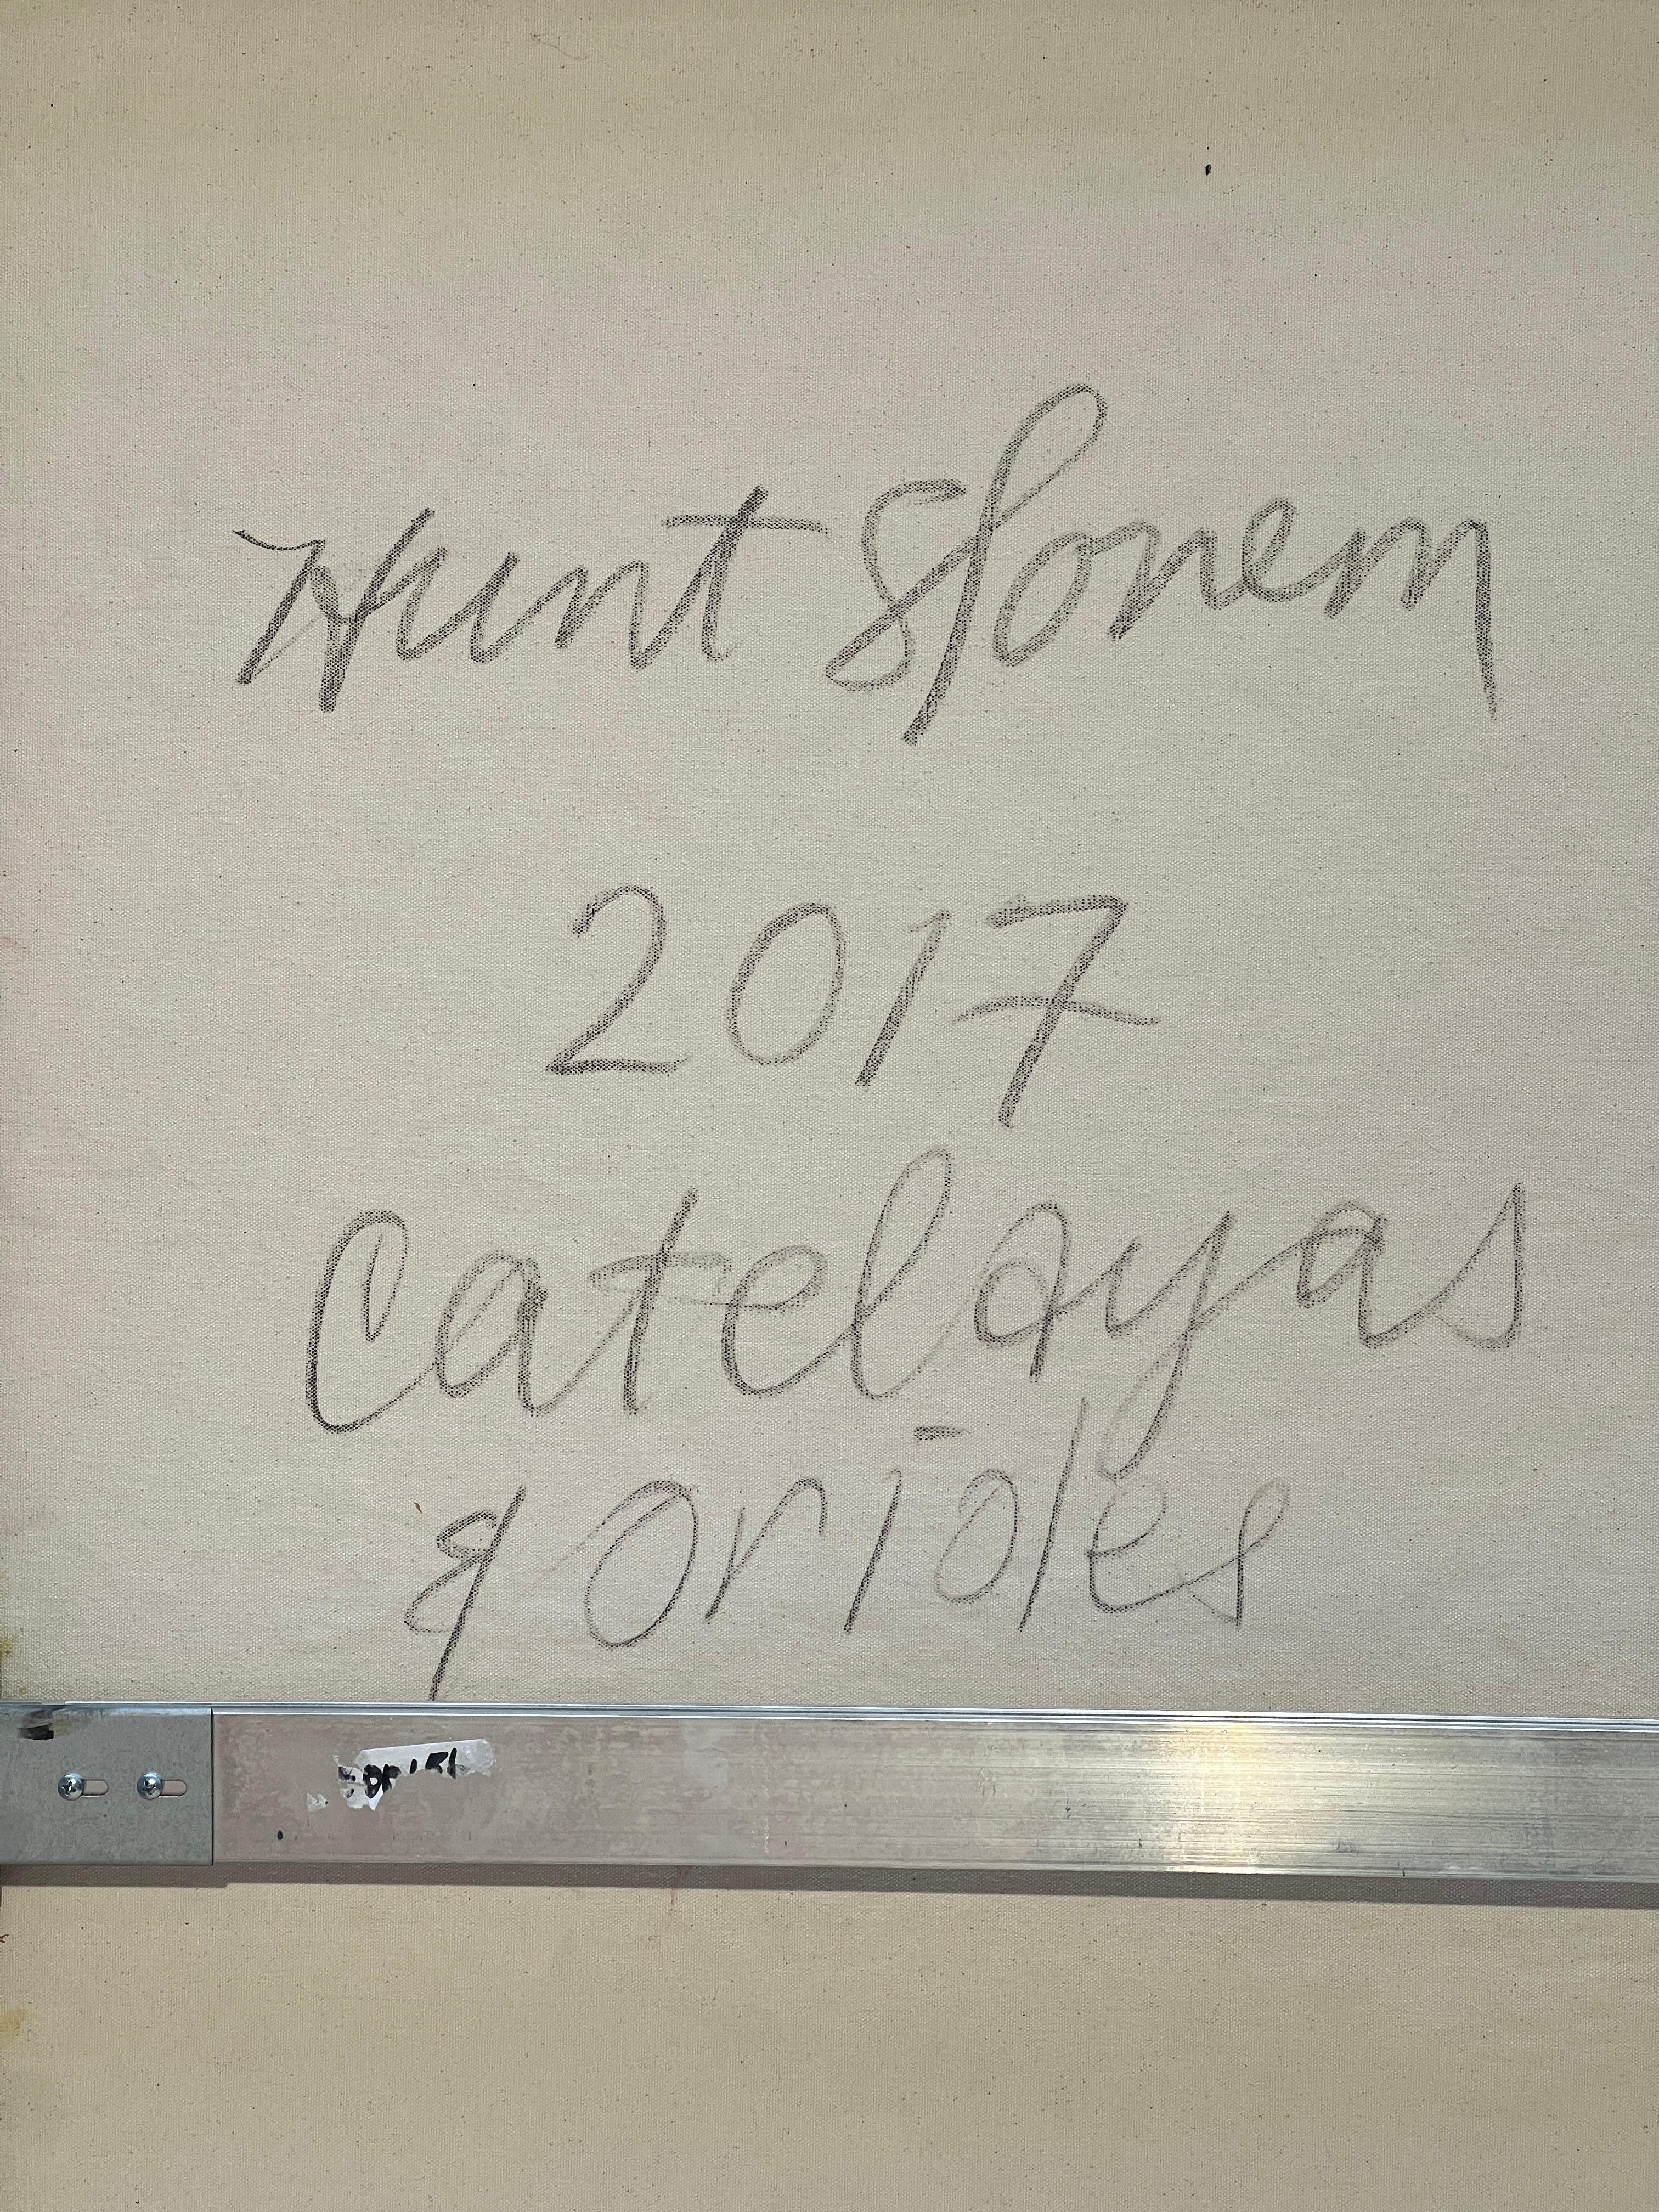 Hunt Slonem
2017
Catelayas
& Orioles